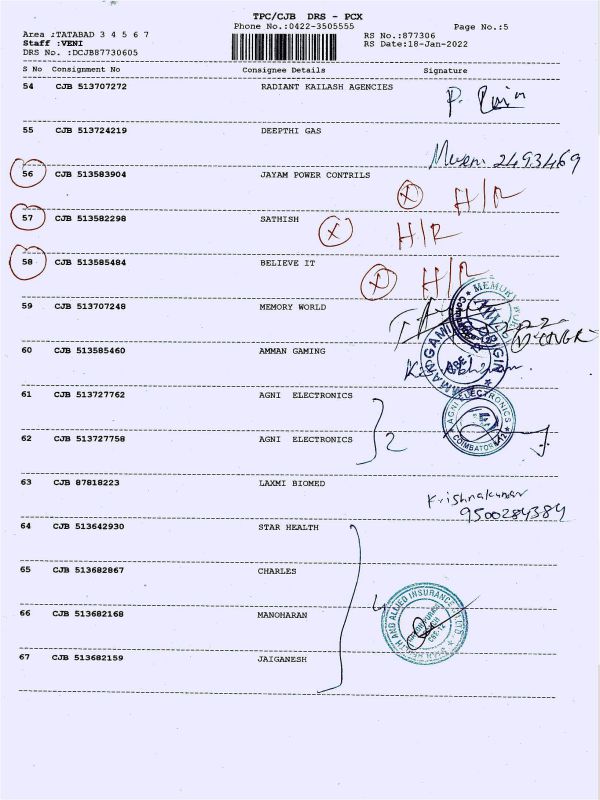 TPC/CJB DRS - PCX
Phone No.:0422-3505555 Page No.:5
Area :TATABAD 3 4 5 6 7 RS No.:877306
Staff :VENI RS Date:18-Jan-2022
DRS No. :DCJB87730605
S No Consignment No Consignee Details Signature
54 CJB 513707272 RADIANT KAILASH AGENCIES
P.
55 CJB 513724219 DEEPTHI GAS
2493469
56 CJB 513583904 JAYAM POWER CONTRILS
X H/R
57 CJB 513582298 SATHISH X H/R
58 CJB 513585484 BELIEVE IT X H/R
59 CJB 513707248 MEMORY WORLD
MEMORY
60 CJB 513585460 AMMAN GAMING
61 CJB 513727762 AGNI ELECTRONICS
AGNI ELECTRONICS
COIMBATORE-12
2
62 CJB 513727758 AGNI ELECTRONICS
63 CJB 87818223 LAXMI BIOMED
Krishnakumar
9500284384
64 CJB 513642930 STAR HEALTH
65 CJB 513682867 CHARLES
4
AND ALLIED INSURANCE
66 CJB 513682168 MANOHARAN
67 CJB 513682159 JAIGANESH